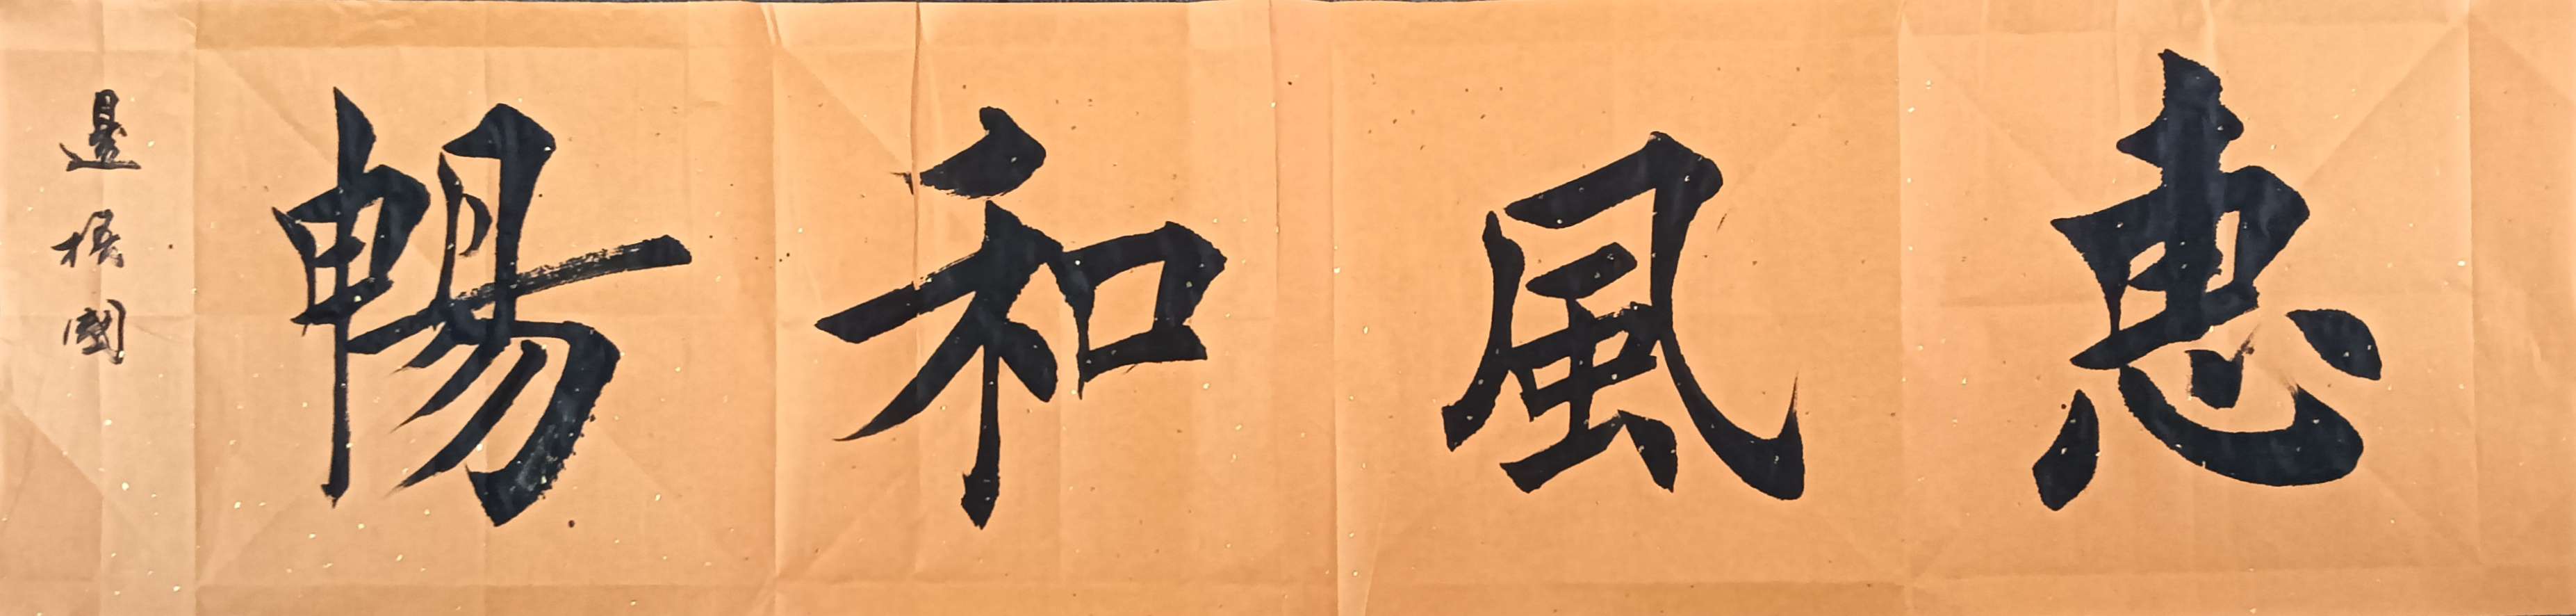 惠風和暢
邊振國